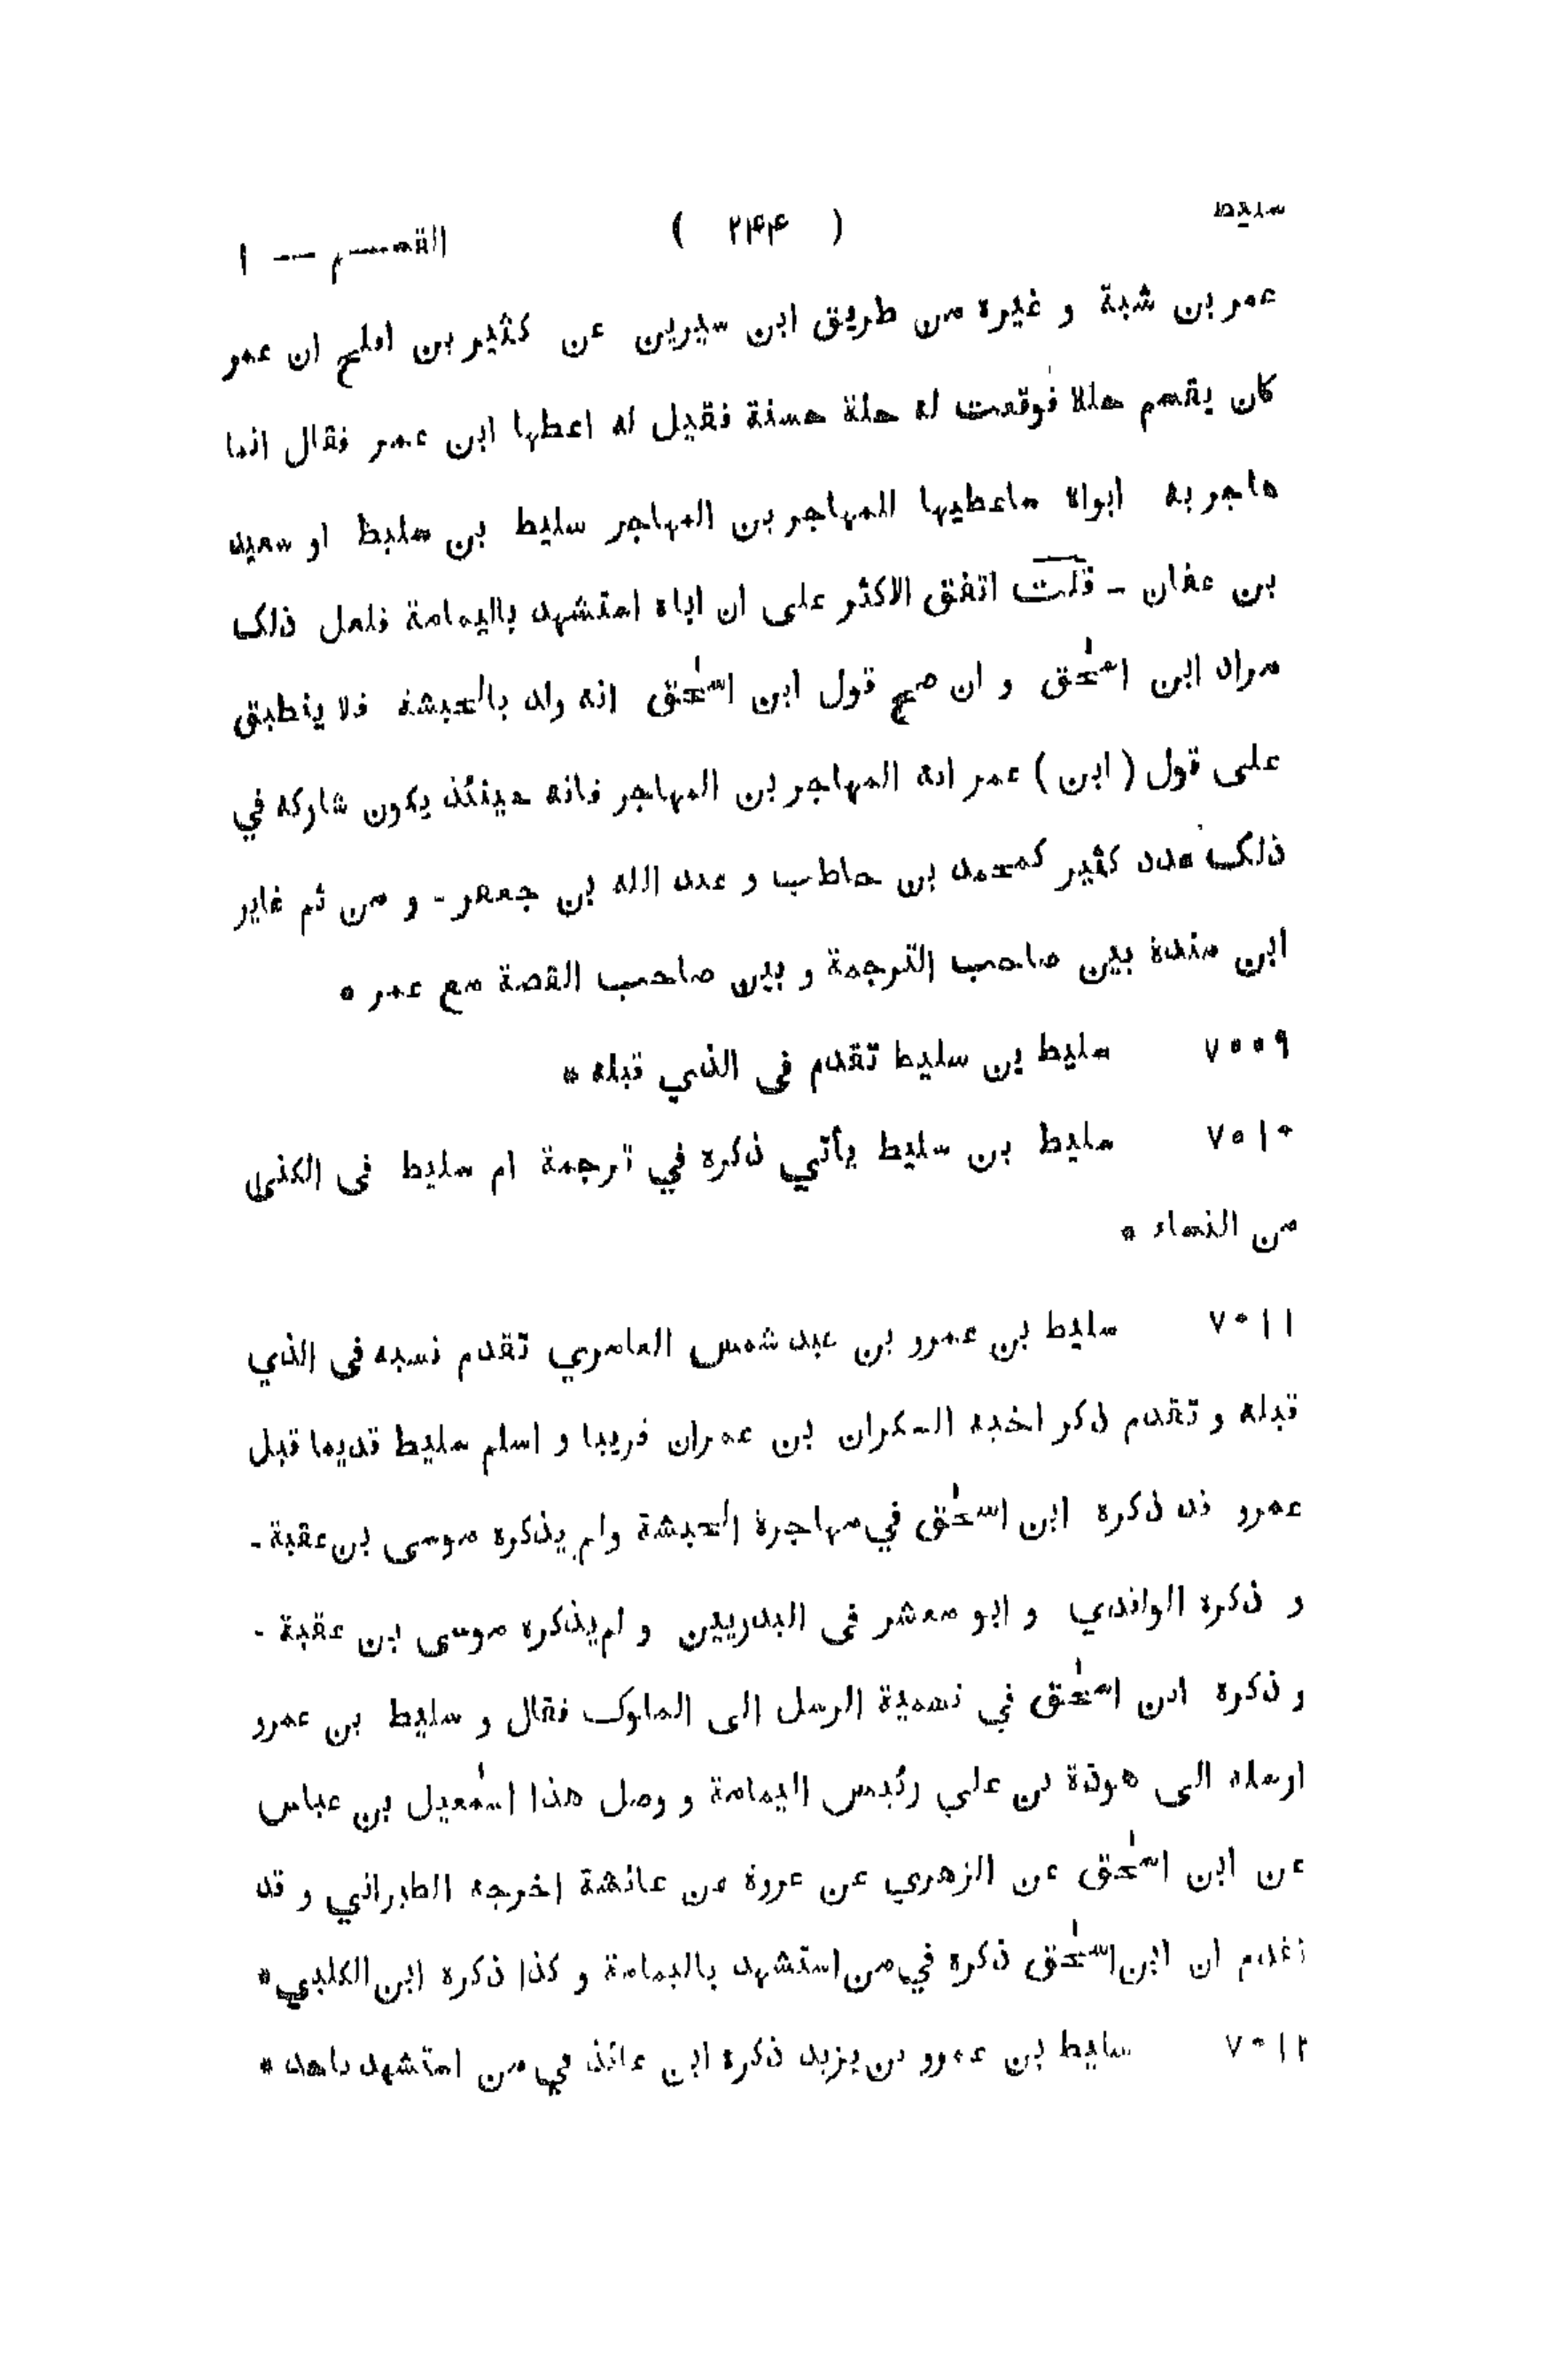 سليط
( ۲۴۴ )
القسم — ۱
عمر بن شبة و غيره من طريق ابن سيرين عن كثير بن افلح ان عمر
كان يقسم حللا فوقعت له حلة حسنة فقيل له اعطها ابن عمر فقال انما
هاجر به ابواه ساعطيها للمهاجر بن المهاجر سليط بن سليط او سعيد
بن عفان - قلت اتفق الاكثر على ان اباه استشهد باليمامة فلعل ذلك
مراد ابن اسحٰق و ان صح قول ابن اسحٰق انه ولد بالحبشة فلا ينطبق
على قول ( ابن ) عمر انه المهاجر بن المهاجر فانه حينئذ يكون شاركه في
ذلك عدد كثير كمحمد بن حاطب و عبد الله بن جعفر - و من ثم غاير
ابن مندة بين صاحب الترجمة و بين صاحب القصة مع عمر *
۷۰۰۹ سليط بن سليط تقدم فى الذي قبله *
۷۰۱۰ سليط بن سليط يأتي ذكره في ترجمة ام سليط فى الكنى
من النساء *
۷۰۱۱ سليط بن عمرو بن عبد شمس العامري تقدم نسبه فى الذي
قبله و تقدم ذكر اخيه السكران بن عمران قريبا و اسلم سليط قديما قبل
عمرو قد ذكره ابن اسحٰق في مهاجرة الحبشة ولم يذكره موسى بن عقبة -
و ذكره الواقدي و ابو معشر فى البدريين و لم يذكره موسى بن عقبة -
و ذكره ابن اسحٰق في تسمية الرسل الى الملوك فقال و سليط بن عمرو
ارسله الى هوذة بن علي رئيس اليمامة و وصل هذا اسمٰعيل بن عباس
عن ابن اسحٰق عن الزهري عن عروة عن عائشة اخرجه الطبراني و قد
تقدم ان ابن اسحٰق ذكره في من استشهد باليمامة و كذا ذكره ابن الكلبي *
۷۰۱۲ سليط بن عمرو بن يزيد ذكره ابن عائذ في من استشهد باحد *